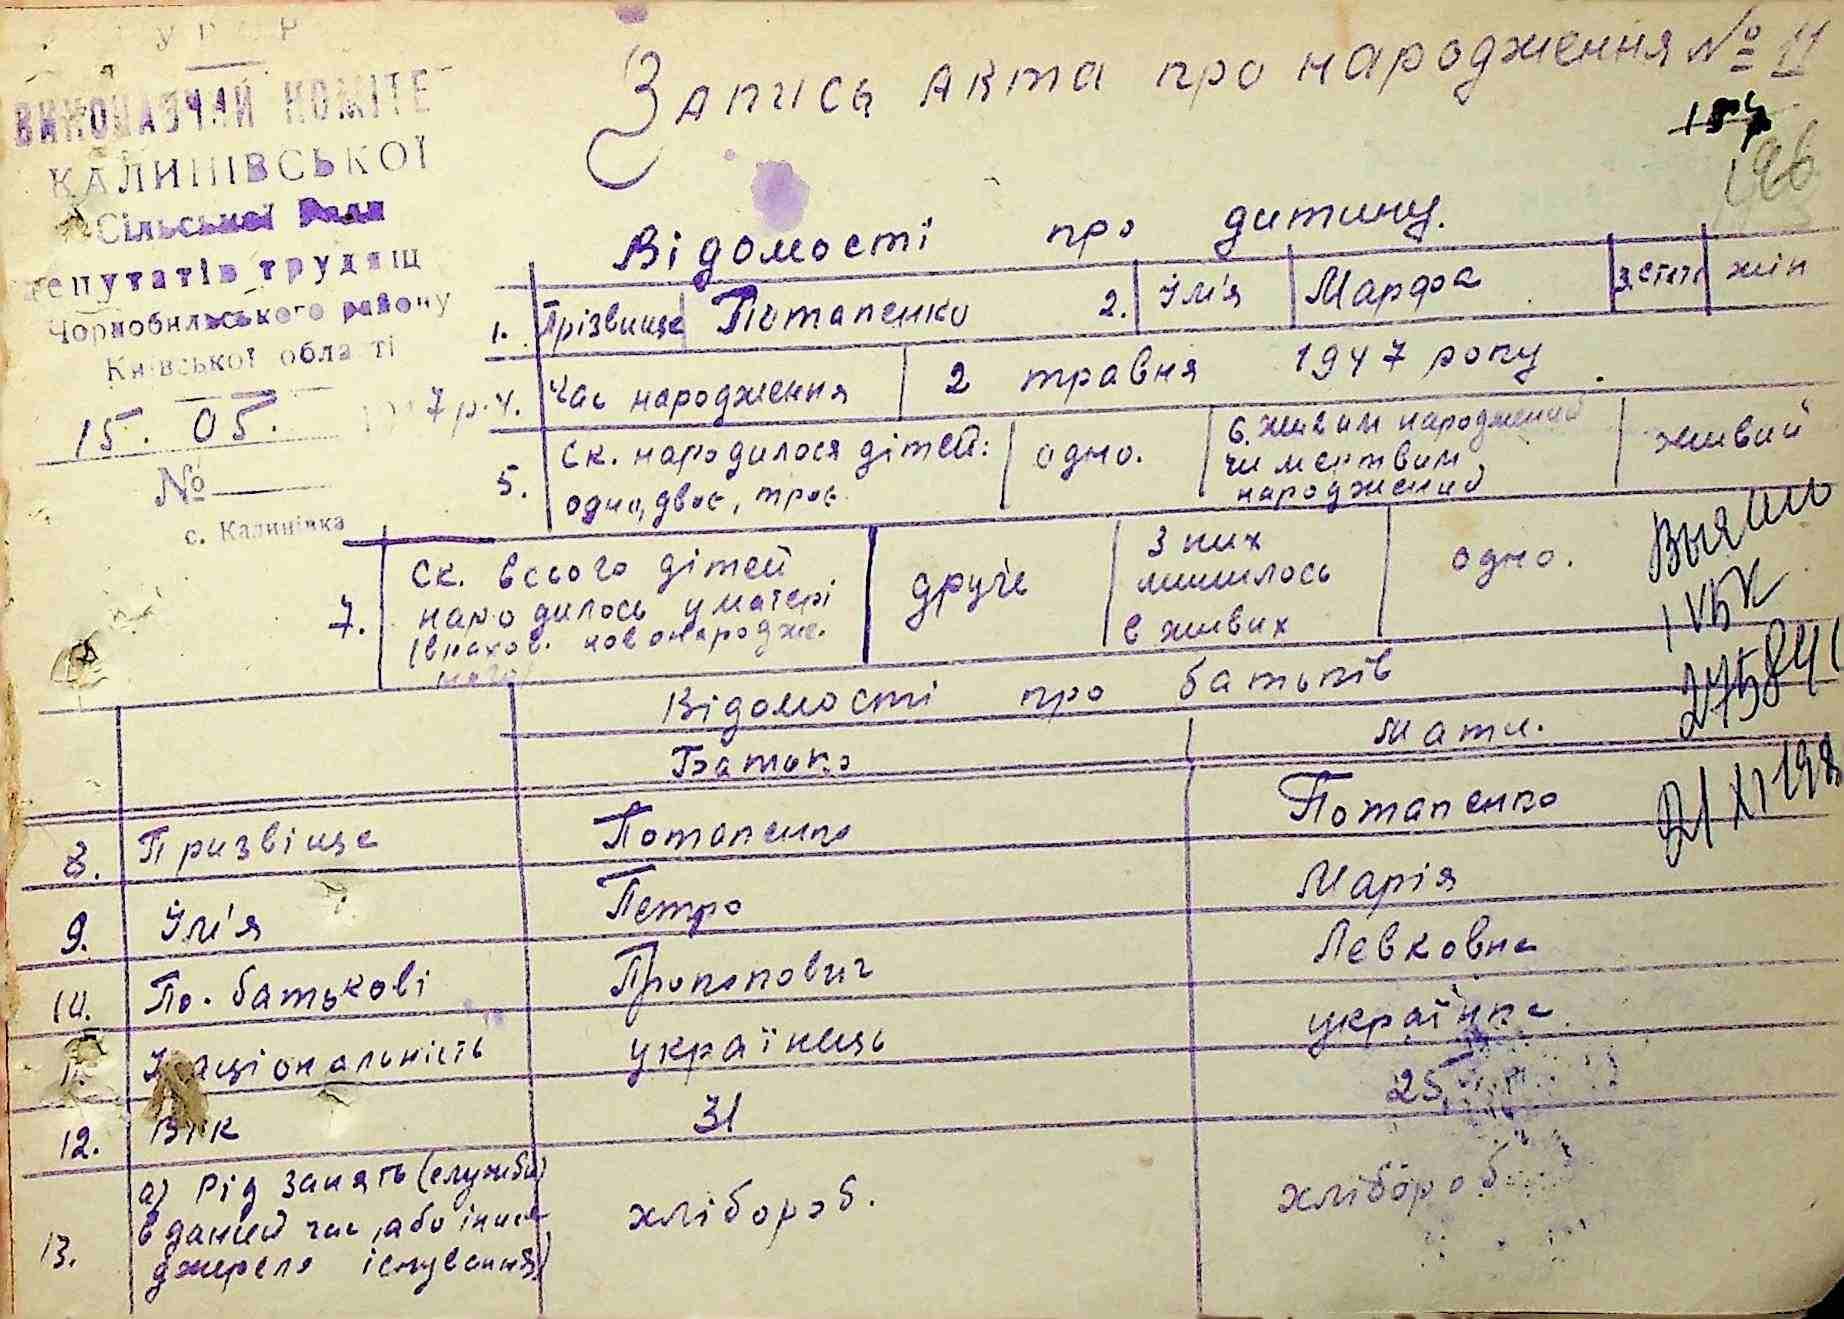 УРСР
ВИКОНАВЧИЙ КОМІТЕ
КАЛИНІВСЬКОЇ
Сільської Ради
депутатів трудящ
Чорнобильського району
Київської області
15. 05. 7 р.
№
с. Калинівка
Запись акта про народження № 11
196
Відомості про дитину.
1. Прізвище Потапенко 2. Їм'я Марфа 3. стать жін
4. Час народження 2 травня 1947 року.
5. Ск. народилося дітей: одно, двоє, троє. одно. 6. живим народжений чи мертвим народжений живий
7. Ск. всього дітей народилось у матері (внахов. новонародже. друге З них лишилось в живих одно.
Відомості про батьків
Батько Мати.
8. Призвіще Потапенко Потапенко
9. Їм'я Петро Марія
10. По-батькові Прокопович Левковна
11. Національність українець українка.
12. Вік 31 25
13. а) Рід занять (служби) в даний час, або інше джерело існування) хлібороб. хлібороб